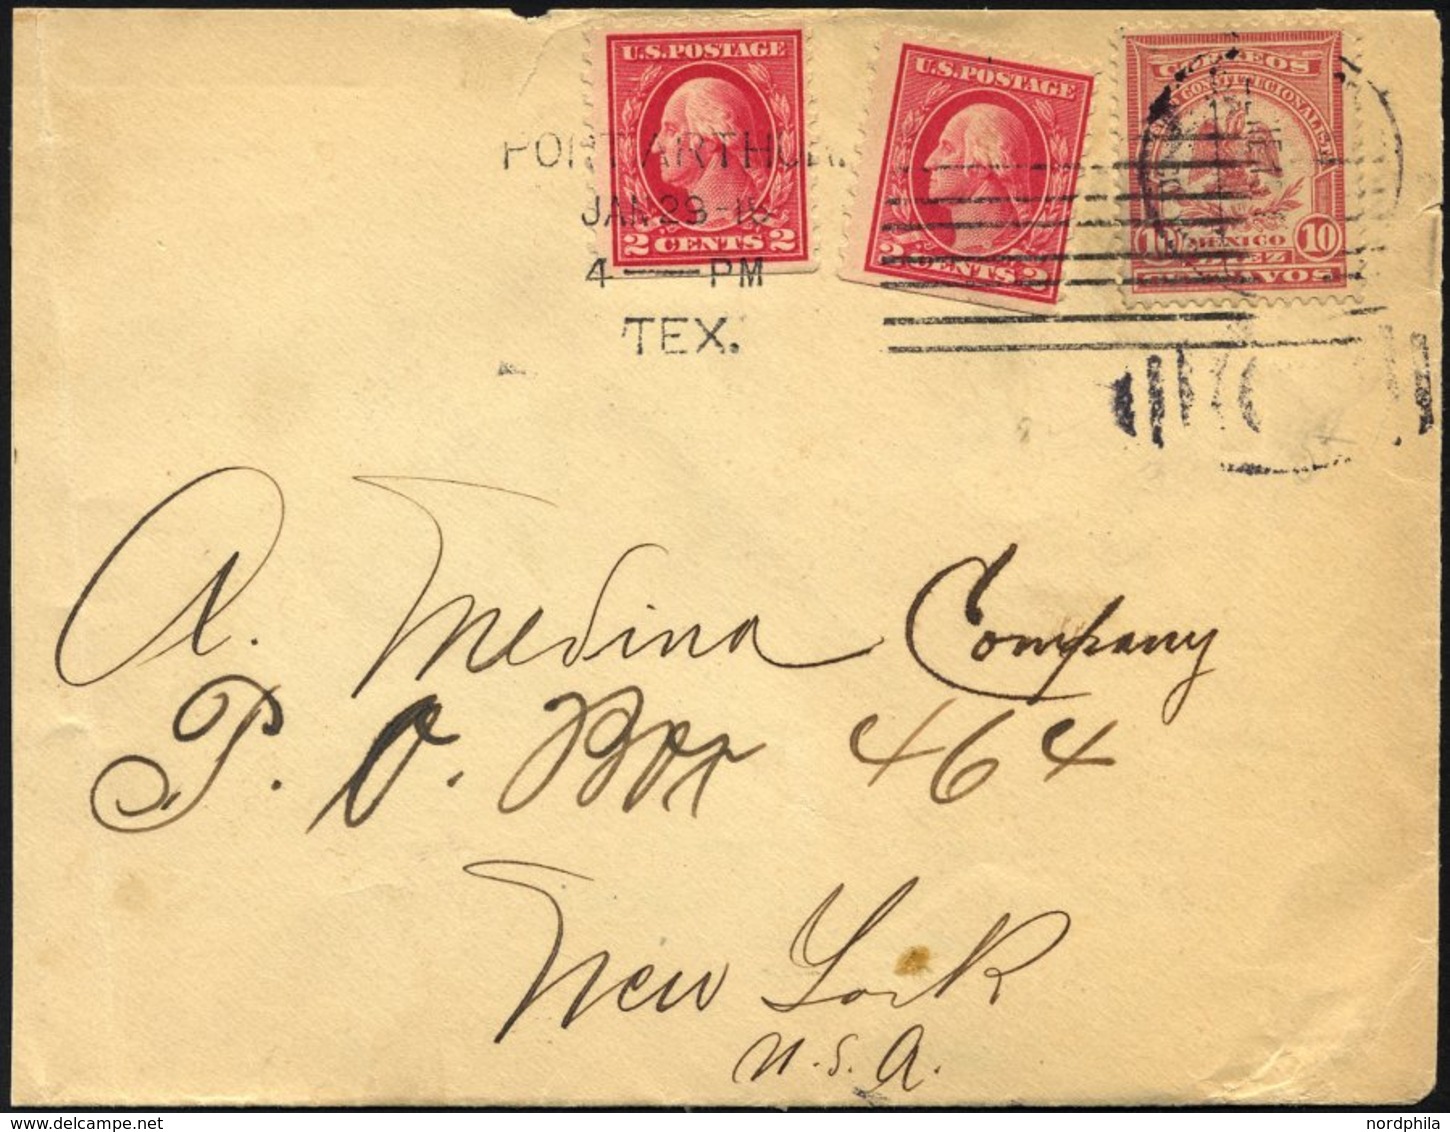 U.S.POSTAGE
2 CENTS 2
U.S.POSTAGE
2 CENTS 2
CORREOS
CONSTITUCIONALISTA
10 MEXICO 10
DIEZ
CENTAVOS
PORT ARTHUR.
JAN 29
4 PM
TEX.
A. Medina Company
P. O. Box 464
New York
U.S.A.
nordphila